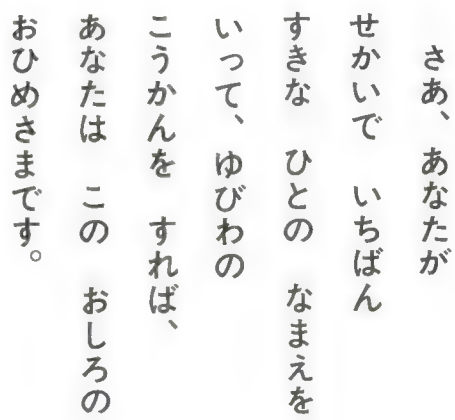 さあ、あなたが
せかいで　いちばん
すきな　ひとの　なまえを
いって、ゆびわの
こうかんを　すれば、
あなたは　この　おしろの
おひめさまです。